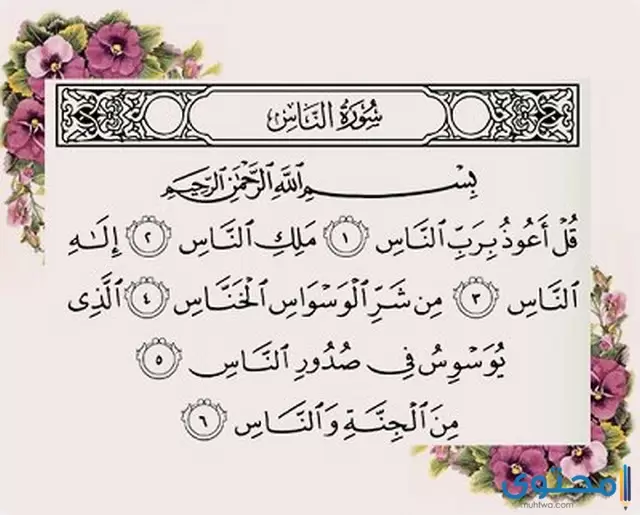 سُورَةُ النَّاسِ
بِسْمِ اللَّهِ الرَّحْمَٰنِ الرَّحِيمِ
قُلْ أَعُوذُ بِرَبِّ ٱلنَّاسِ ١ مَلِكِ ٱلنَّاسِ ٢ إِلَٰهِ
ٱلنَّاسِ ٣ مِن شَرِّ ٱلْوَسْوَاسِ ٱلْخَنَّاسِ ٤ ٱلَّذِى
يُوَسْوِسُ فِى صُدُورِ ٱلنَّاسِ ٥
مِنَ ٱلْجِنَّةِ وَٱلنَّاسِ ٦
محتوى
muhtwa.com